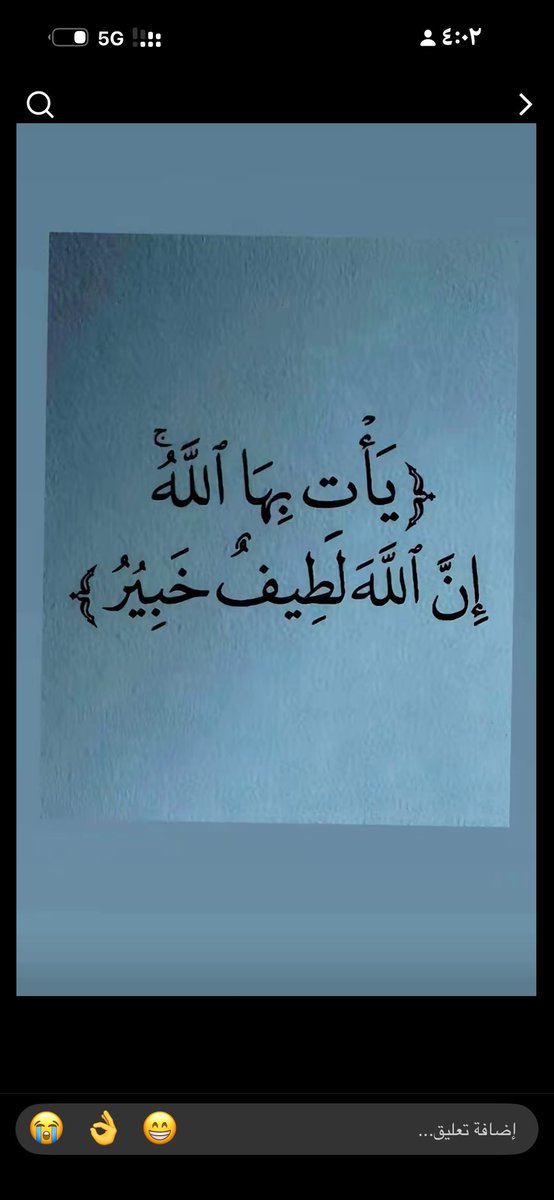 ٤:٠٢
5G
﴿يَأْتِ بِهَا ٱللَّهُ ۚ
إِنَّ ٱللَّهَ لَطِيفٌ خَبِيرٌ﴾
إضافة تعليق...